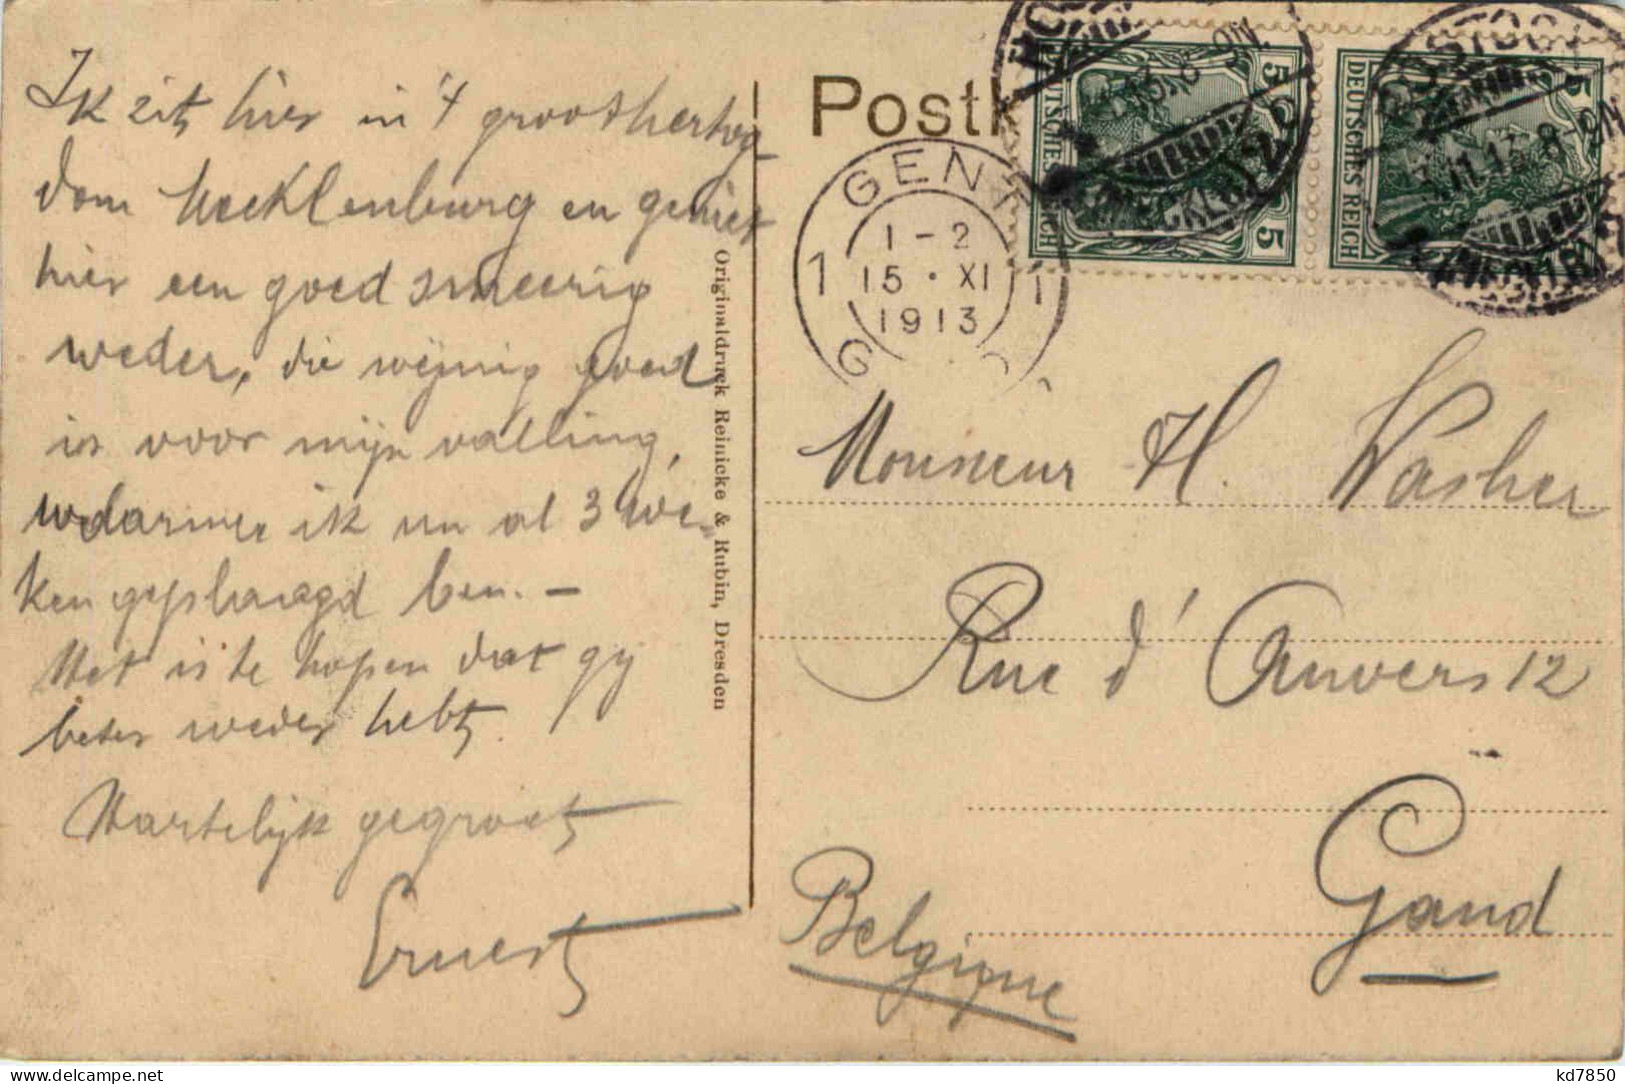 Ik zit hier in 't groothertog-
dom Mecklenburg en geniet
hier een goed smeerig
weder, die weinig goed
is voor mijn valling,
waarmee ik nu al 3 we-
ken geplaagd ben. –
Het is te hopen dat gij
beter weder hebt.
Hartelijk gegroet
Ernest
Originaldruck Reinicke & Rubin, Dresden
Postk
GENT
1-2
1 15 · XI 1
1913
G
5 5
DEUTSCHES REICH
13. 8-9N.
(MECKLB) 2
5
DEUTSCHES REICH
ROSTOCK
11.13. 8-9N
(MECKLB)
Monsieur H. Washer
Rue d'Anvers 12
Gand
Belgique
kd7850